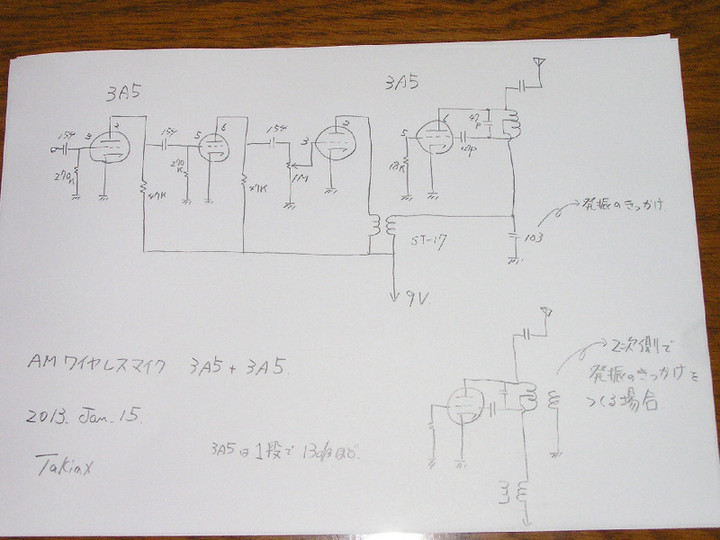 3A5
3A5
154
3
2
270K
47K
154
5
6
270K
47K
154
3
2
1M
5
6
18K
47P
47P
ST-17
103
発振のきっかけ
9V.
AMワイヤレスマイク 3A5+3A5.
2013. Jan. 15.
Takinx
3A5は1段で13dB
2次側で
発振のきっかけを
つくる場合